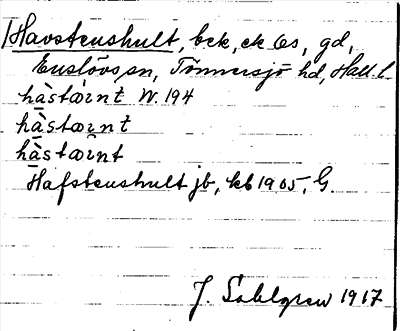 Havstenshult, bck, ck Os, gd,
Enslövs sn, Tönnersjö hd, Hall. l.
hàstær̀nt W. 194
hàstær̀nt
hàstær̀nt
Hafstenshult jb, kb 1905, G.
J. Sahlgren 1917